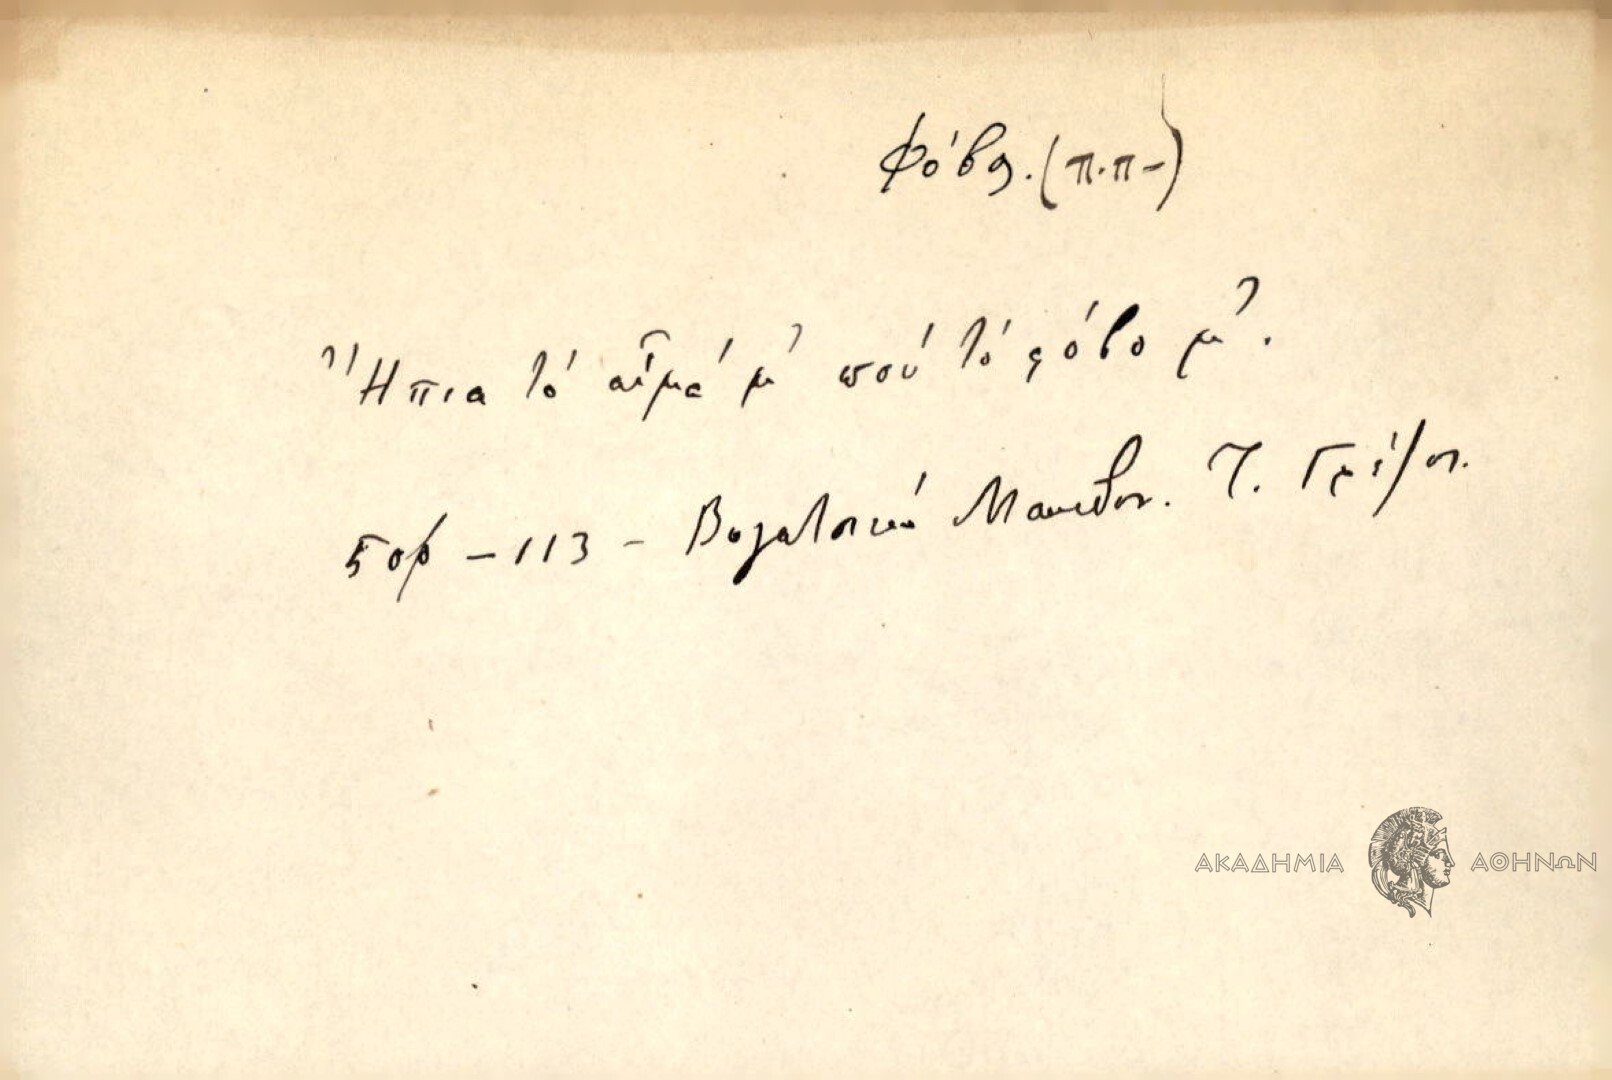 Φόβος. (π.π-)
Ἤπια τό αἷμά μ' πού τό φόβο μ'.
113 - Βογατσικό Μακεδον. Γ.
ΑΚΑΔΗΜΙΑ ΑΘΗΝΩΝ